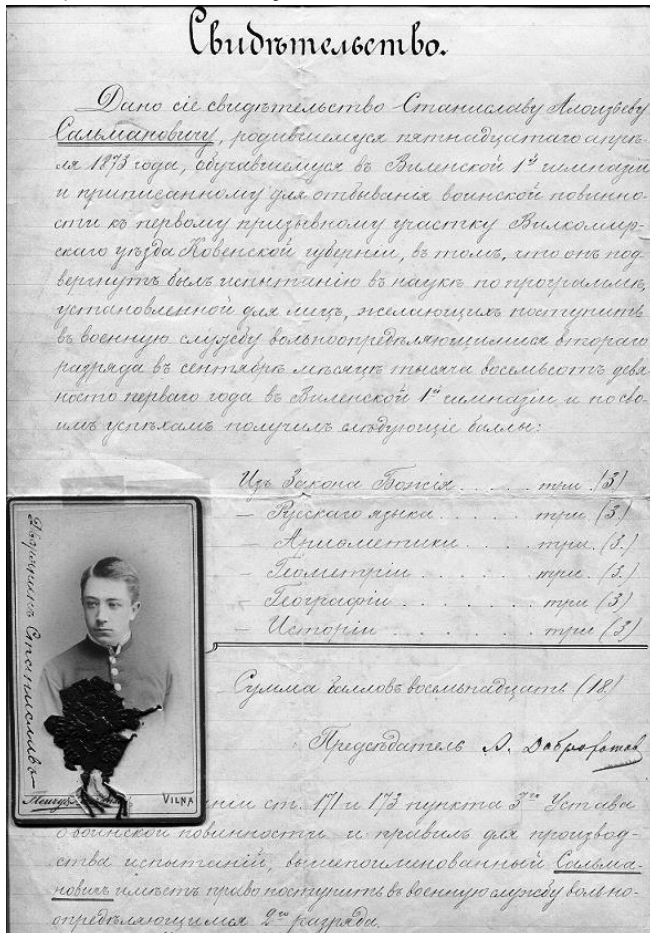 Свидѣтельство.
Дано сіе свидѣтельство Станиславу Алоизьеву
Сальмановичу, родившемуся пятнадцатаго апрѣ-
ля 1873 года, обучавшемуся въ Виленской 1й гимназіи
и приписанному для отбыванія воинской повинно-
сти къ первому призывному участку Вилкомир-
скаго уѣзда Ковенской губерніи, въ томъ, что онъ под-
вергнутъ былъ испытанію въ наукѣ по программѣ,
установленной для лицъ, желающихъ поступить
въ военную службу вольноопредѣляющимися втораго
разряда въ сентябрѣ мѣсяцѣ тысяча восемьсотъ девя
носто перваго года въ Виленской 1й гимназіи и по сво-
имъ успѣхамъ получилъ слѣдующіе баллы:
Изъ Закона Божія . . . . . три (3)
— Русскаго языка . . . . . три (3)
— Ариѳметики . . . . . три (3.)
— Геометріи . . . . . три (3.)
— Географіи . . . . . три (3)
— Исторіи . . . . . три (3)
Сумма балловъ восемьнадцать (18)
Предсѣдатель А.
Дворянинъ Станиславъ
VILNA
ст. 171 и 173 пункта 3го Устава
о воинской повинности и правилъ для производ-
ства испытаній, вышепоименованный Сальма-
новичъ имѣетъ право поступить въ военную службу вольно-
опредѣляющимся 2го разряда.